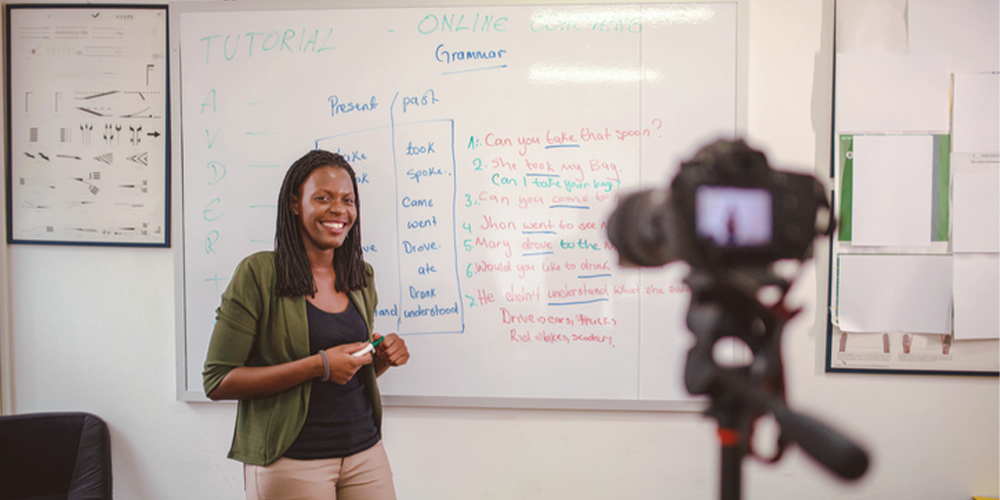 TUTORIAL - ONLINE COACHING
Grammar
Present / past
took
spoke.
Came
went
Drove.
ate
Drank
understood
A
V
D
E
R
+
1. Can you take that spoon?
2. She took my Bag.
Can I take your bag?
3. Can you come to
4. Jhon went to see
5. Mary drove to the
6. Would you like to drink
7. He didn't understand what she
Drive :- cars, trucks,
bikes,